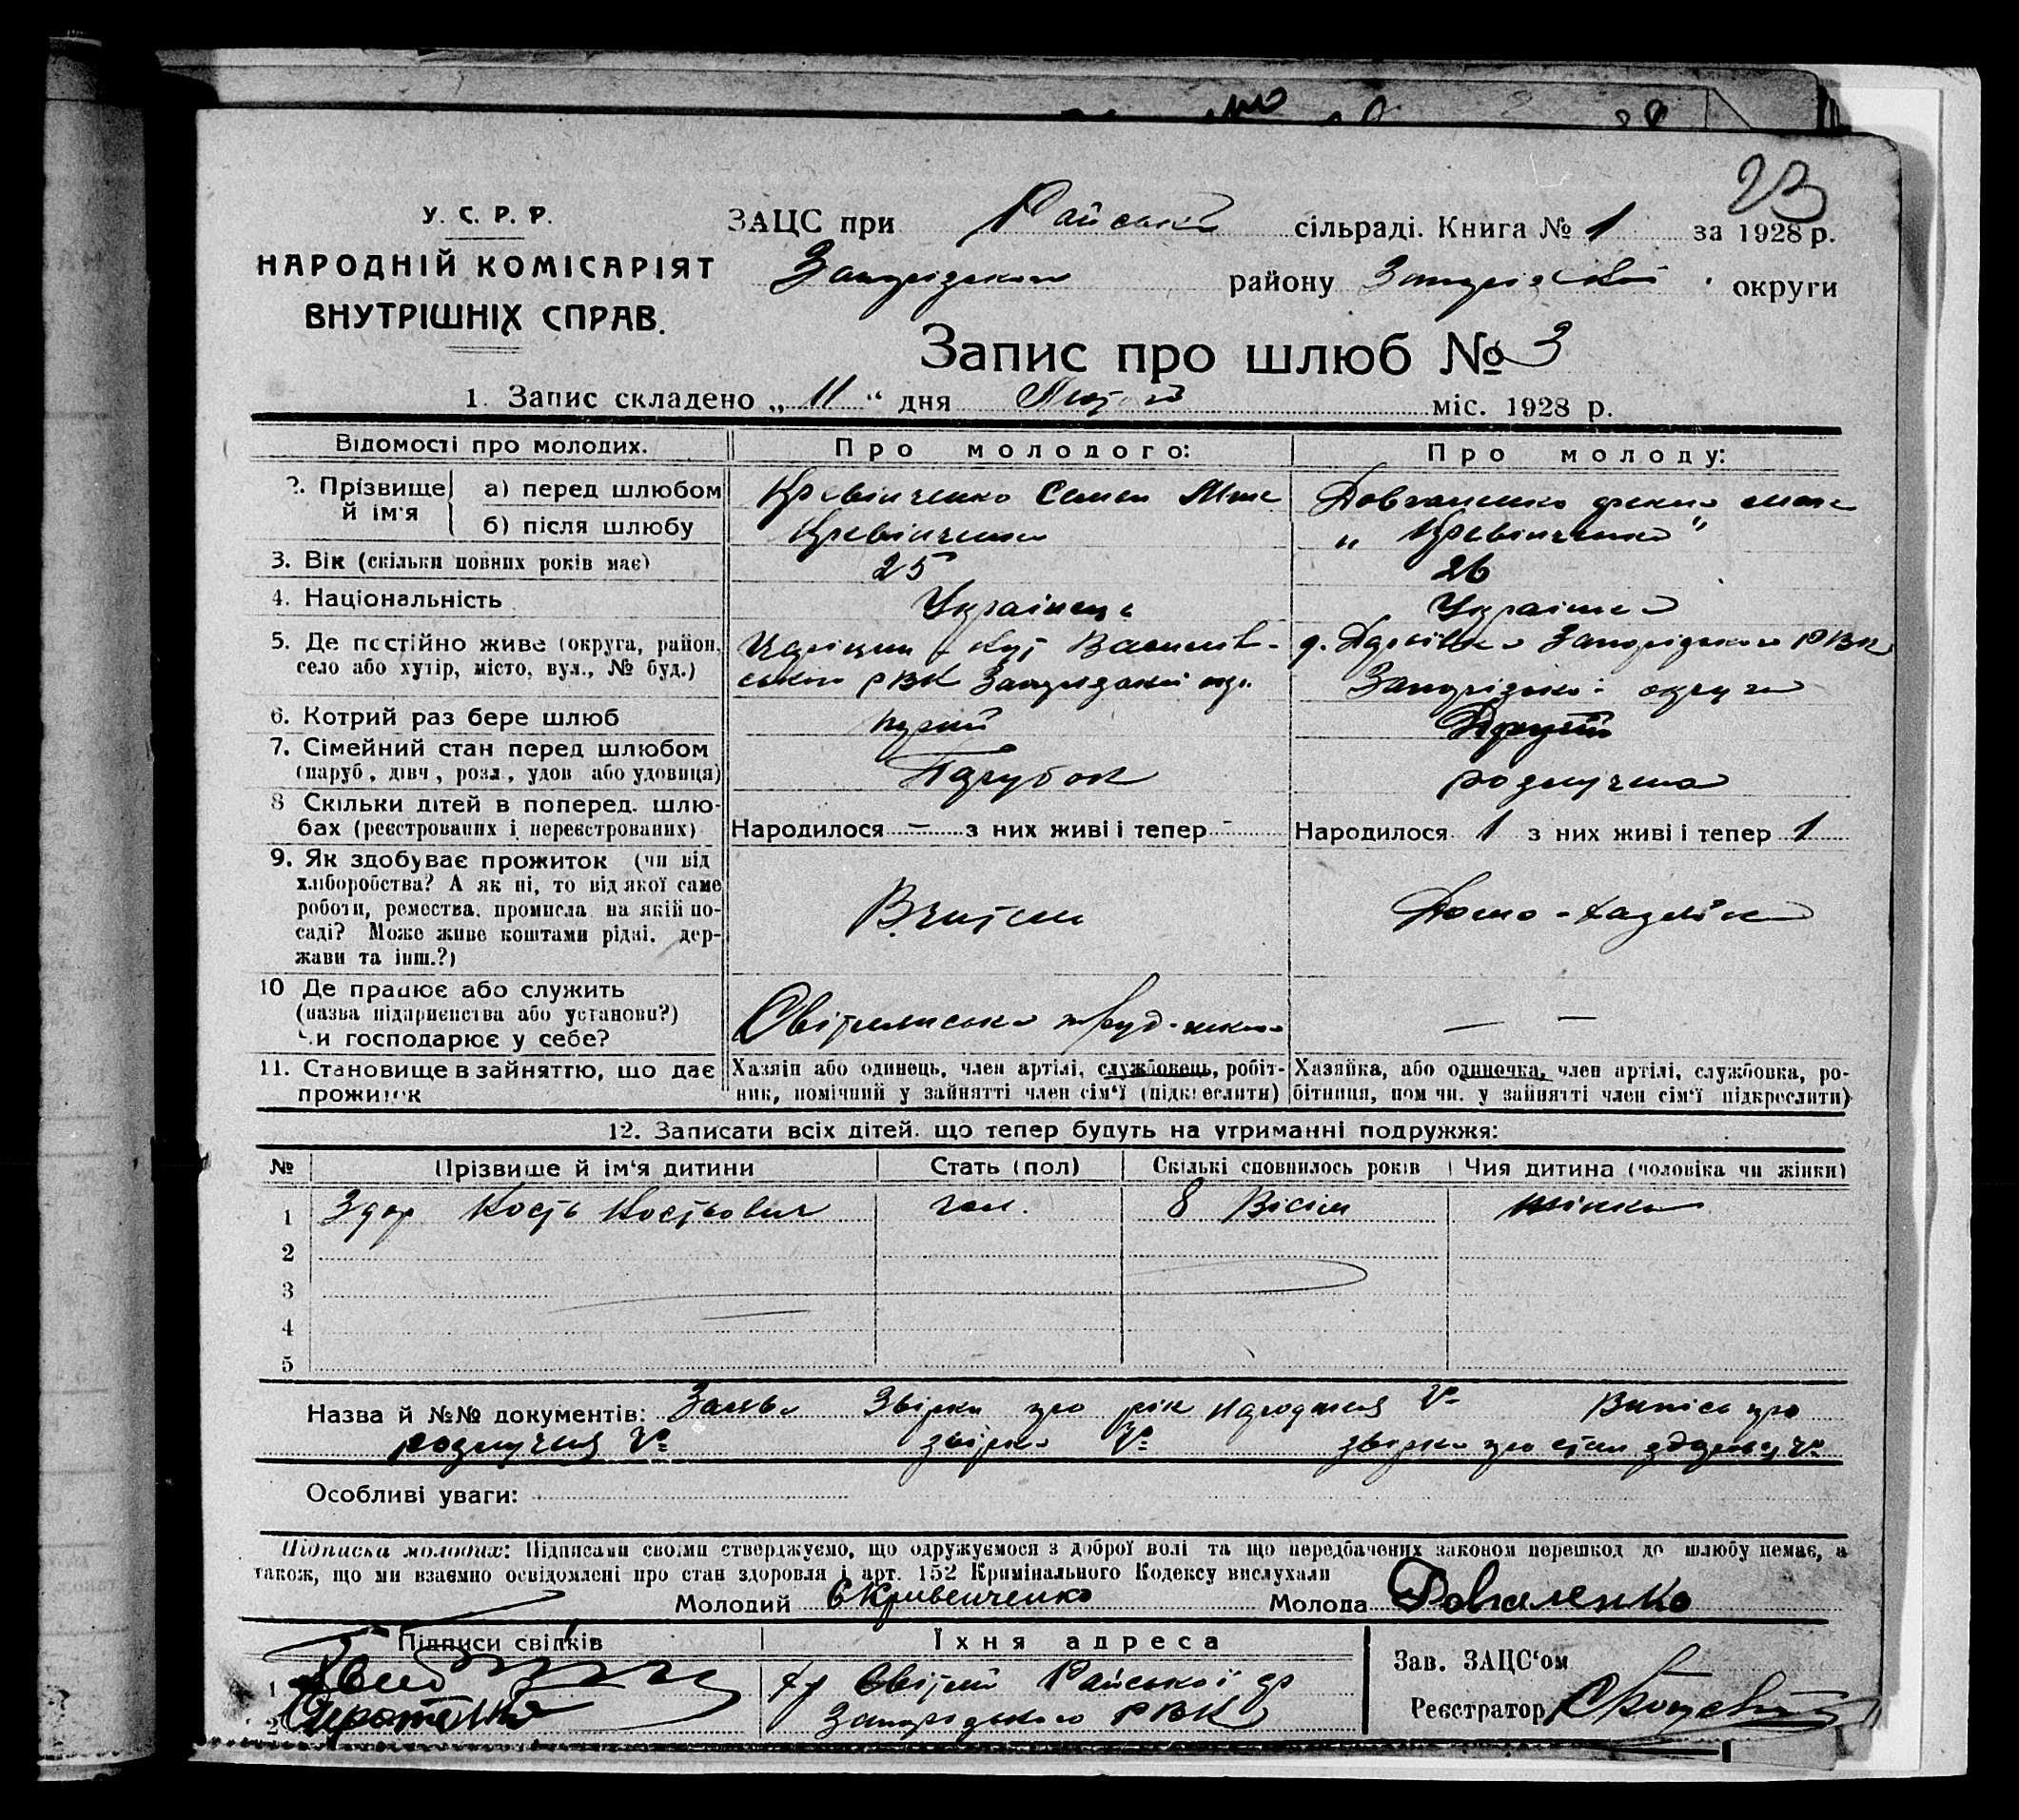 23
У. С. Р. Р.
НАРОДНІЙ КОМІСАРІЯТ
ВНУТРІШНІХ СПРАВ.
ЗАЦС при Райській сільраді. Книга № 1 за 1928 р.
Запорізького району Запорізької округи
Запис про шлюб № 3
1. Запис складено „ 11 “ дня Лютого міс. 1928 р.
Відомості про молодих. Про молодого: Про молоду:
2. Прізвище й ім'я а) перед шлюбом Кревінченко Семен Довгаленко
б) після шлюбу Кревінченко „ Кревінченко "
3. Вік (скільки повних років має) 25 26
4. Національність Українець Українка
5. Де постійно живе (округа, район, село або хутір, місто, вул., № буд.)
Царицин - Кут Василів-
ського РВК Запорізької окр.
Запорізького РВК
Запорізької округи
6. Котрий раз бере шлюб перший Другий
7. Сімейний стан перед шлюбом (паруб., дівч., розл., удов або удовиця) Парубок розлучена
8 Скільки дітей в поперед. шлюбах (реєстрованих і нереєстрованих)
Народилося — з них живі і тепер -
Народилося 1 з них живі і тепер 1
9. Як здобуває прожиток (чи від
хліборобства? А як ні, то від якої саме
роботи, ремества, промисла на якій по-
саді? Може живе коштами рідні, дер-
жави та інш.?)
Вчитель
Домо-хазяйка
10 Де працює або служить
(назва підприємства або установи?)
Чи господарює у себе?
Світлянська труд-школа
— —
11. Становище в зайняттю, що дає
прожиток
Хазяїн або одинець, член артілі, службовець, робіт-
ник, помічний у зайнятті член сім'ї (підкреслити)
Хазяйка, або одиночка, член артілі, службовка, ро-
бітниця, пом чн. у зайнятті член сім'ї підкреслити)
12. Записати всіх дітей. що тепер будуть на утриманні подружжя:
№ Прізвище й ім'я дитини Стать (пол) Скількі сповнилось років Чия дитина (чоловіка чи жінки)
1 Здор Кость Костьович чол. 8 Вісім жінки
2
3
4
5
Назва й №№ документів: Заява Звірка про рік народження № Випись про
розлучення № звірка № звірка про стан здоровья №
Особливі уваги:
Підписка молодих: Підписами своїми стверджуємо, що одружуємося з доброї волі та що передбачених законом перешкод до шлюбу немає, а
також, що ми взаємно освідомлені про стан здоровля і арт. 152 Кримінального Кодексу вислухали
Молодий СКривенченко Молода Довгаленко
Підписи свідків Їхня адреса
1
2
ху Світлий Райської ср
Запорізького РВК
Зав. ЗАЦС'ом
Реєстратор